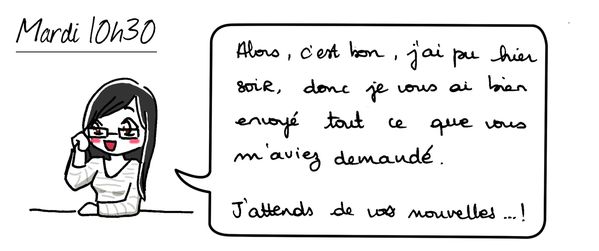 Mardi 10h30
Alors, c'est bon, j'ai pu hier
soir, donc je vous ai bien
envoyé tout ce que vous
m'aviez demandé.
J'attends de vos nouvelles...!